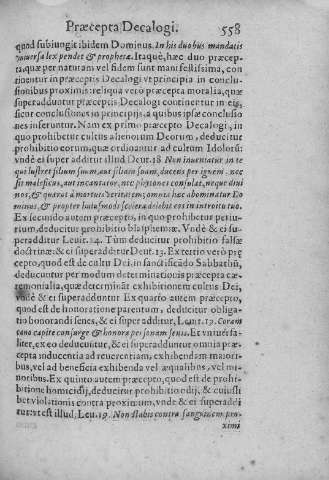 Præcepta Decalogi. 558
quod subiungit ibidem Dominus. In his duobus mandatis
vniuersa lex pendet & prophetæ. Itaquè, hæc duo præcep-
ta, quæ per naturam vel fidem sunt manifestissima, con
tinentur in præceptis Decalogi vt principia in conclu-
sionibus proximis: reliqua verò præcepta moralia, quæ
superadduntur præceptis Decalogi continentur in eis,
sicut conclusiones in principijs, a quibus ipsæ conclusio-
nes inferuntur. Nam ex primo præcepto Decalogi, in
quo prohibetur cultus alienorum Deorum, deducitur
prohibitio eorum, quæ ordinantur ad cultum Idolorũ:
vndè ei super additur illud Deut. 18. Non inueniatur in te
qui lustret filium suum, aut filiam suam, ducens per ignem: nec
sit maleficus, aut incantator, nec phytones consulat, neque diui
nos, & quærat à mortuis veritatem; omnia hæc abominatur Do
minus, & propter huiusmodi scelera delebit eos in introitu tuo.
Ex secundo autem præcepto, in quo prohibetur periu-
rium, deducitur prohibitio blasphemiæ. Vndè & ei su-
peradditur Leuit. 24. Tùm deducitur prohibitio falsæ
doctrinæ: & ei superadditur Deut. 13. Ex tertio verò præ
cepto, quod est de cultu Dei, in sanctificãdo Sabbathũ,
deducuntur per modum determinationis præcepta cæ-
remonialia, quæ determinãt exhibitionem cultus Dei,
vndè & ei superadduntur. Ex quarto autem præcepto,
quod est de honoratione parentum, deducitur obliga-
tio honorandi senes, & ei superadditur, Leuit. 19. Coram
cano capite consurge & honora personam senis. Et vniuersa-
liter, ex eo deducuntur, & ei superadduntur omnia præ-
cepta inducentia ad reuerentiam, exhibendam maiori-
bus, vel ad beneficia exhibenda vel æqualibus, vel mi-
noribus. Ex quinto autem præcepto, quod est de prohi-
bitione homicidij, deducitur prohibitio odij, & cuiusli
bet violationis contra proximum, vndè & ei superaddi
tur: vt est illud, Leu. 19. Non stabis contra sanguinem pro-
ximi